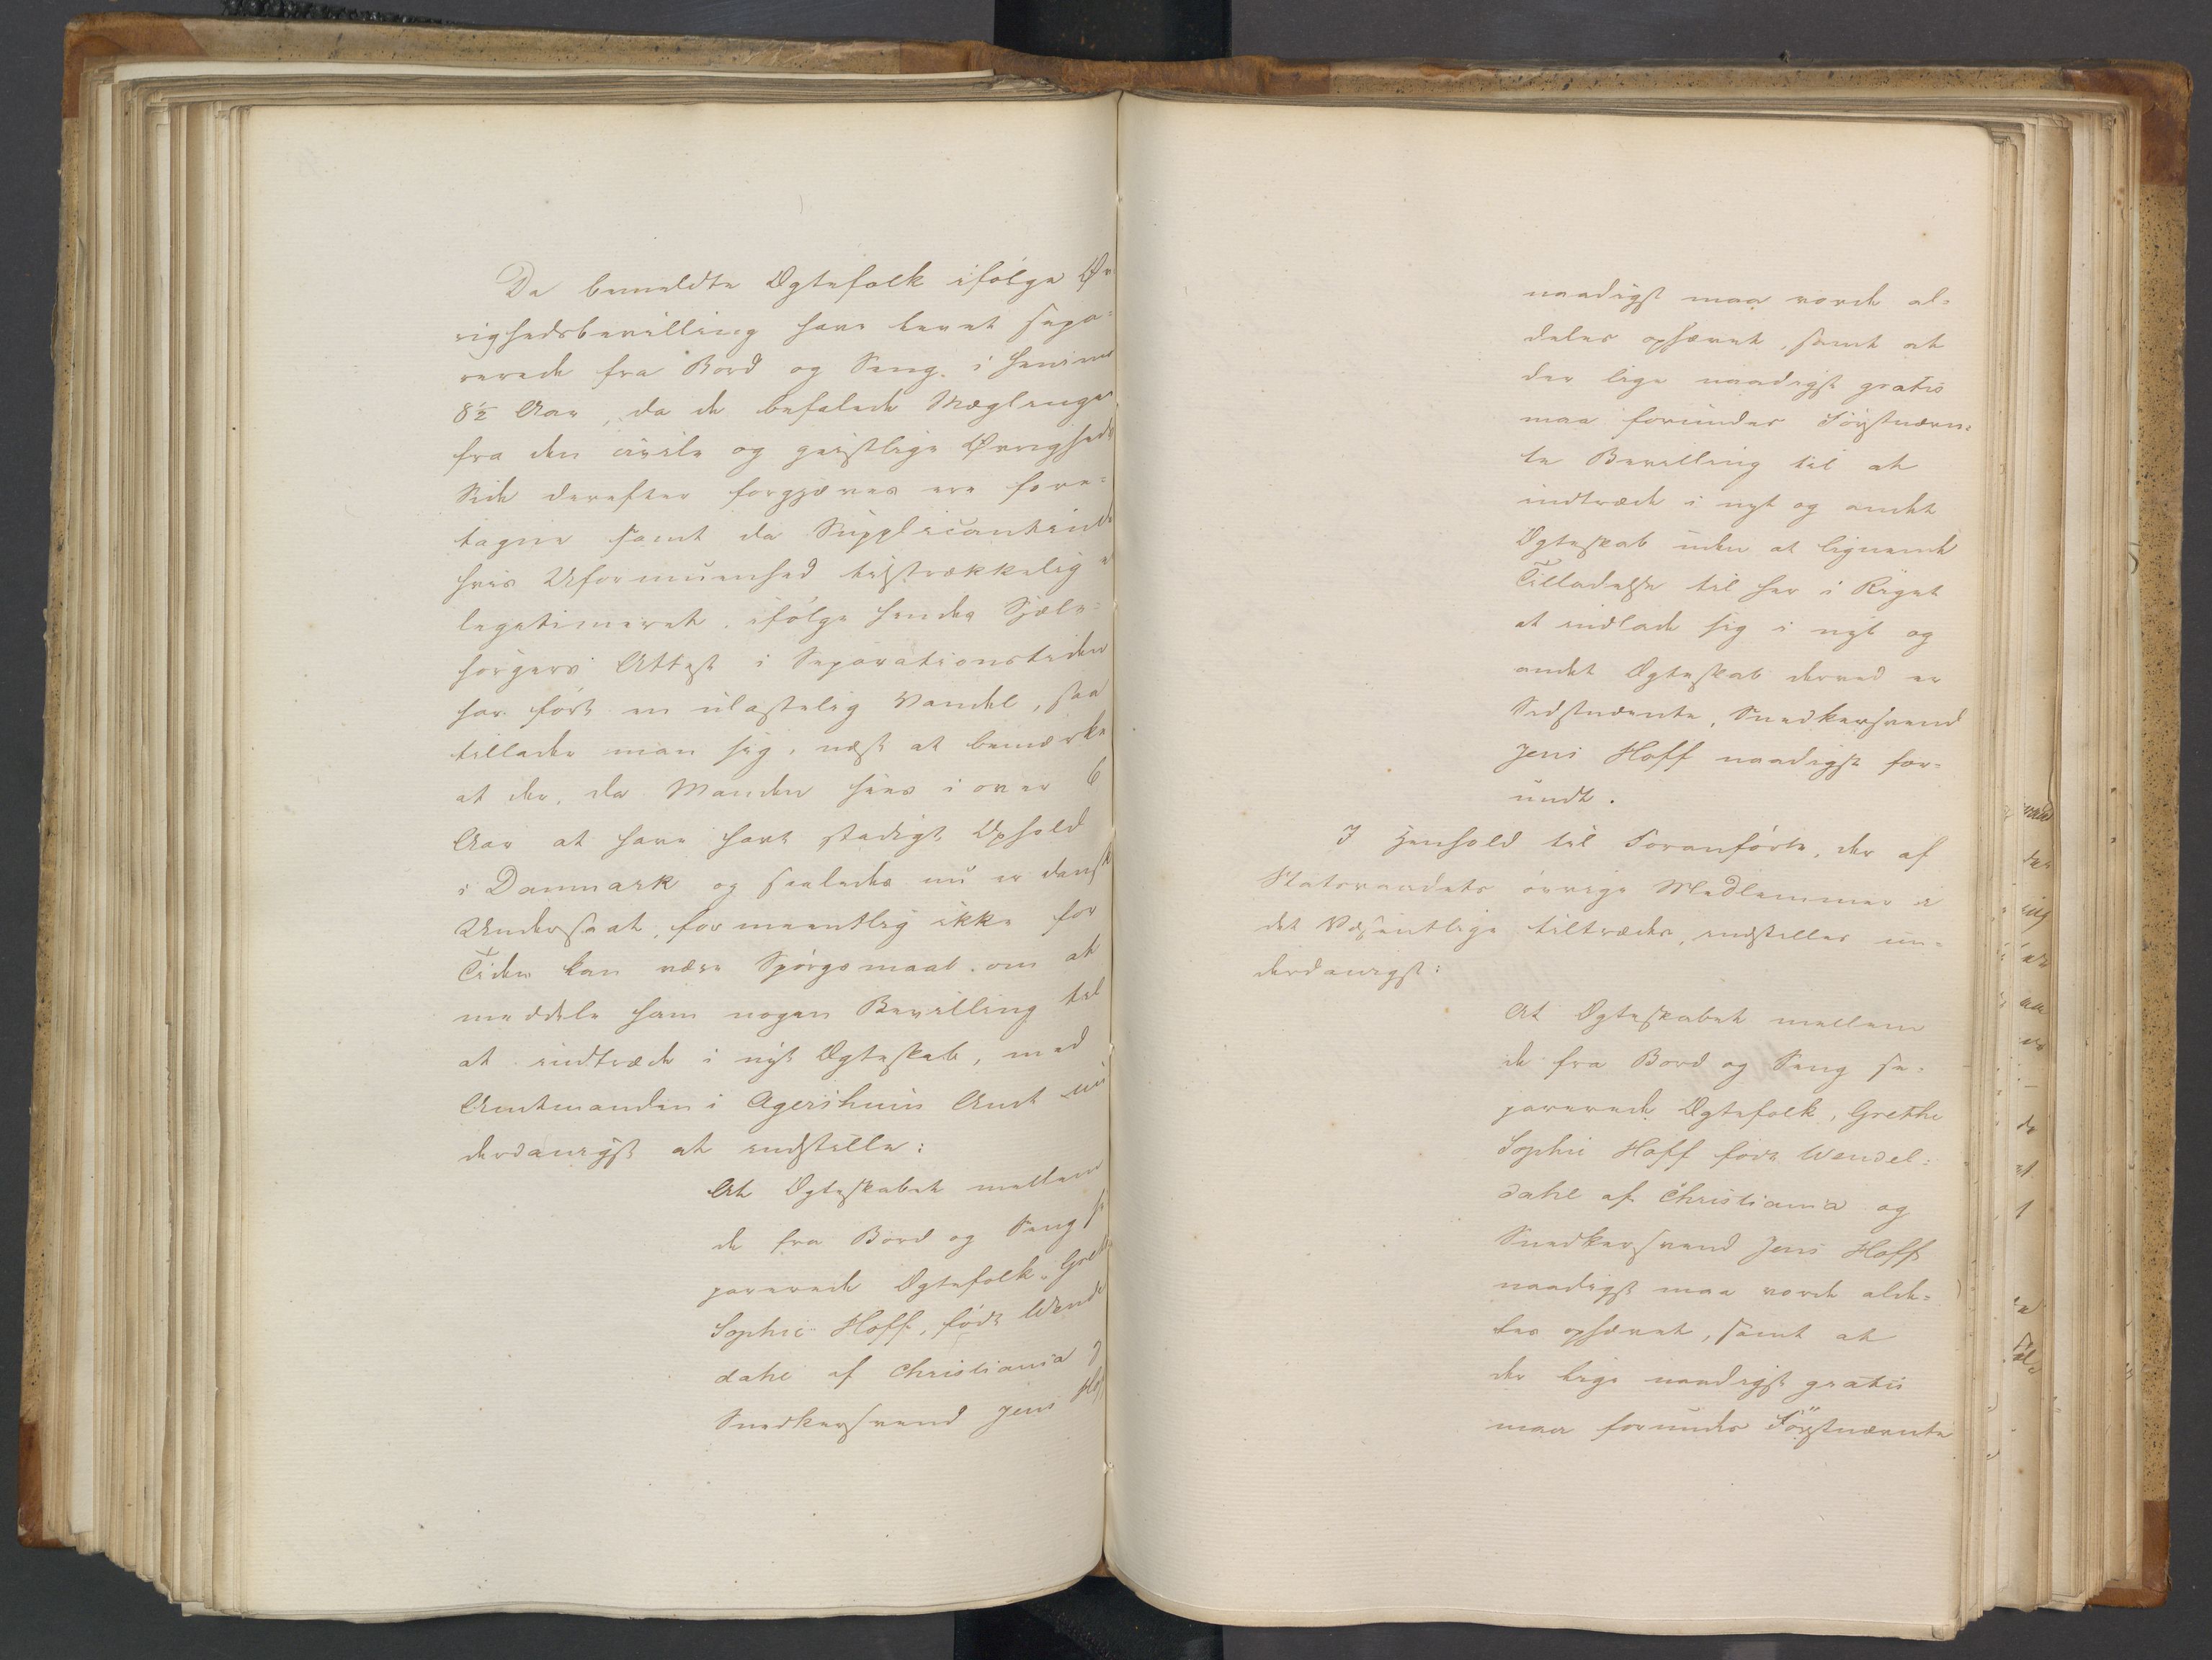 Da bemeldte Ægtefolk ifølge Øv
righedsbevilling have levet sepa-
rerede fra Bord og Seng i henimod
8½ Aar, da de befalede Mæglinger
fra den civile og geistlige Øvrigheds
Side derefter forgjæves ere fore-
tagne samt da Supplicantinde
hvis Uformuenhed tilstrækkelig er
legitimeret, ifølge hendes Sjæle-
sørgers Attest i Separationstiden
har ført en ulastelig Vandel, saa
tillader man sig, næst at bemærke
at der, da Manden sees i over 6
Aar at have havt stadigt Ophold
i Danmark og saaledes nu er dansk
Undersaat, formeentlig ikke for
Tiden kan være Spørgsmaal om at
meddele ham nogen Bevilling til
at indtræde i nyt Ægteskab, med
Amtmanden i Agershuus Amt un
derdanigst at indstille:
At Ægteskabet mellem
de fra Bord og Seng se
parerede Ægtefolk, Greth
Sophie Hoff, født Wendel
dahl af Christiania og
Snedkersvend Jens Hof
naadigst maa vorde al-
deles ophævet, samt at
der lige naadigst gratis
maa forundes Førstnævn-
te Bevilling til at
indtræde i nyt og andet
Ægteskab uden at lignende
Tilladelse til her i Riget
at indlade sig i nyt og
andet Ægteskab derved er
Sidstnævnte, Snedkersvend
Jens Hoff naadigst for-
undt.
I Henhold til Foranførte, der af
Statsraadets øvrige Medlemmer i
det Væsentlige tiltrædes, indstilles un-
derdanigst:
At Ægteskabet mellem
de fra Bord og Seng se-
parerede Ægtefolk, Grethe
Sophie Hoff født Wendel-
dahl af Christiania og
Snedkersvend Jens Hoff
naadigst maa vorde alde-
les ophævet, samt at
der lige naadigst gratis
maa forundes Førstnævnte